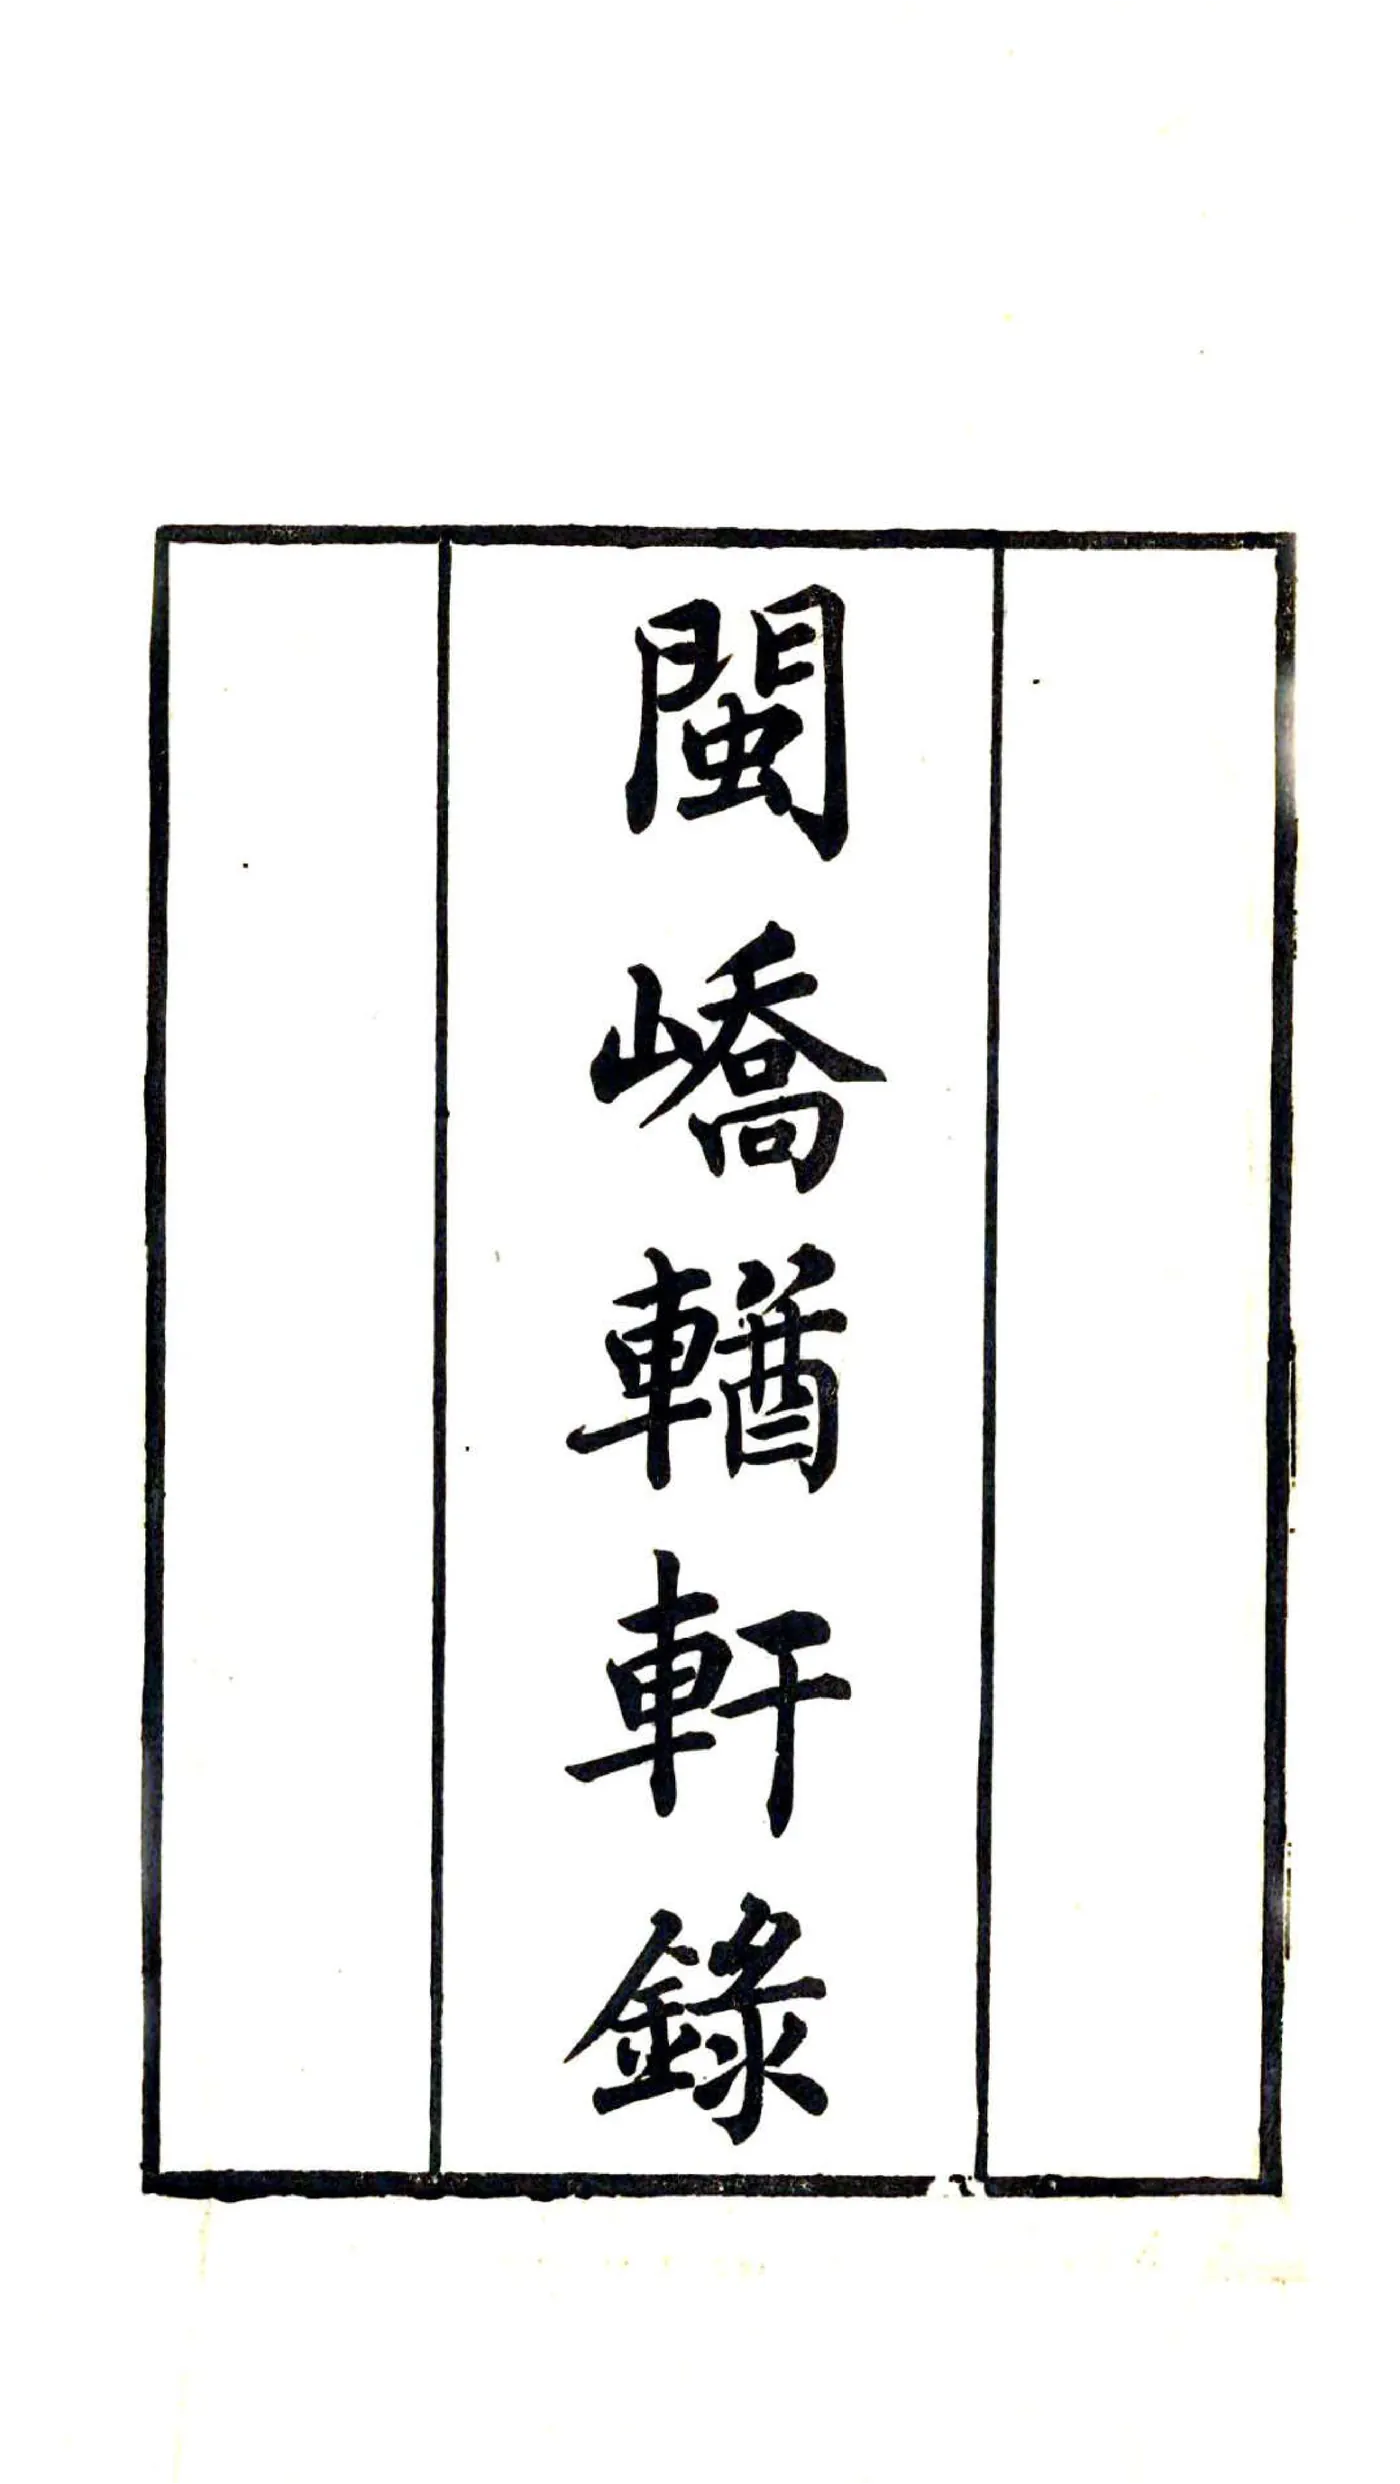 閩嶠輶軒錄